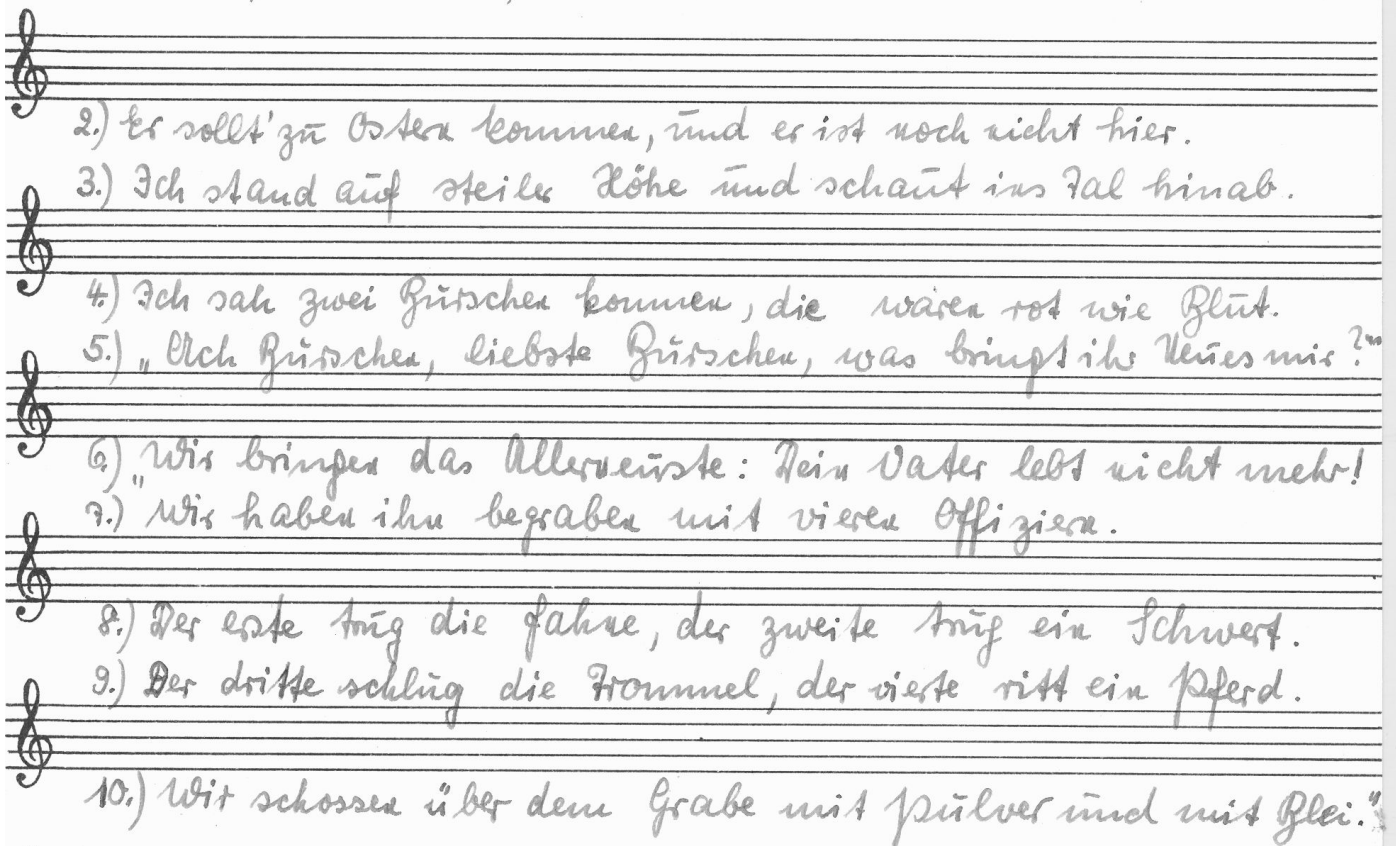 2.) Er sollt' zu Ostern kommen, und er ist noch nicht hier.
3.) Ich stand auf steiler Höhe und schaut ins Tal hinab.
4.) Ich sah zwei Burschen kommen, die waren rot wie Blut.
5.) „Ach Burschen, liebste Burschen, was bringt ihr Neues mir?"
6.) „Wir bringen das Allerneuste: Dein Vater lebt nicht mehr!
7.) Wir haben ihn begraben mit vieren Offiziern.
8.) Der erste trug die Fahne, der zweite trug ein Schwert.
9.) Der dritte schlug die Trommel, der vierte ritt ein Pferd.
10.) Wir schossen über dem Grabe mit Pulver und mit Blei."